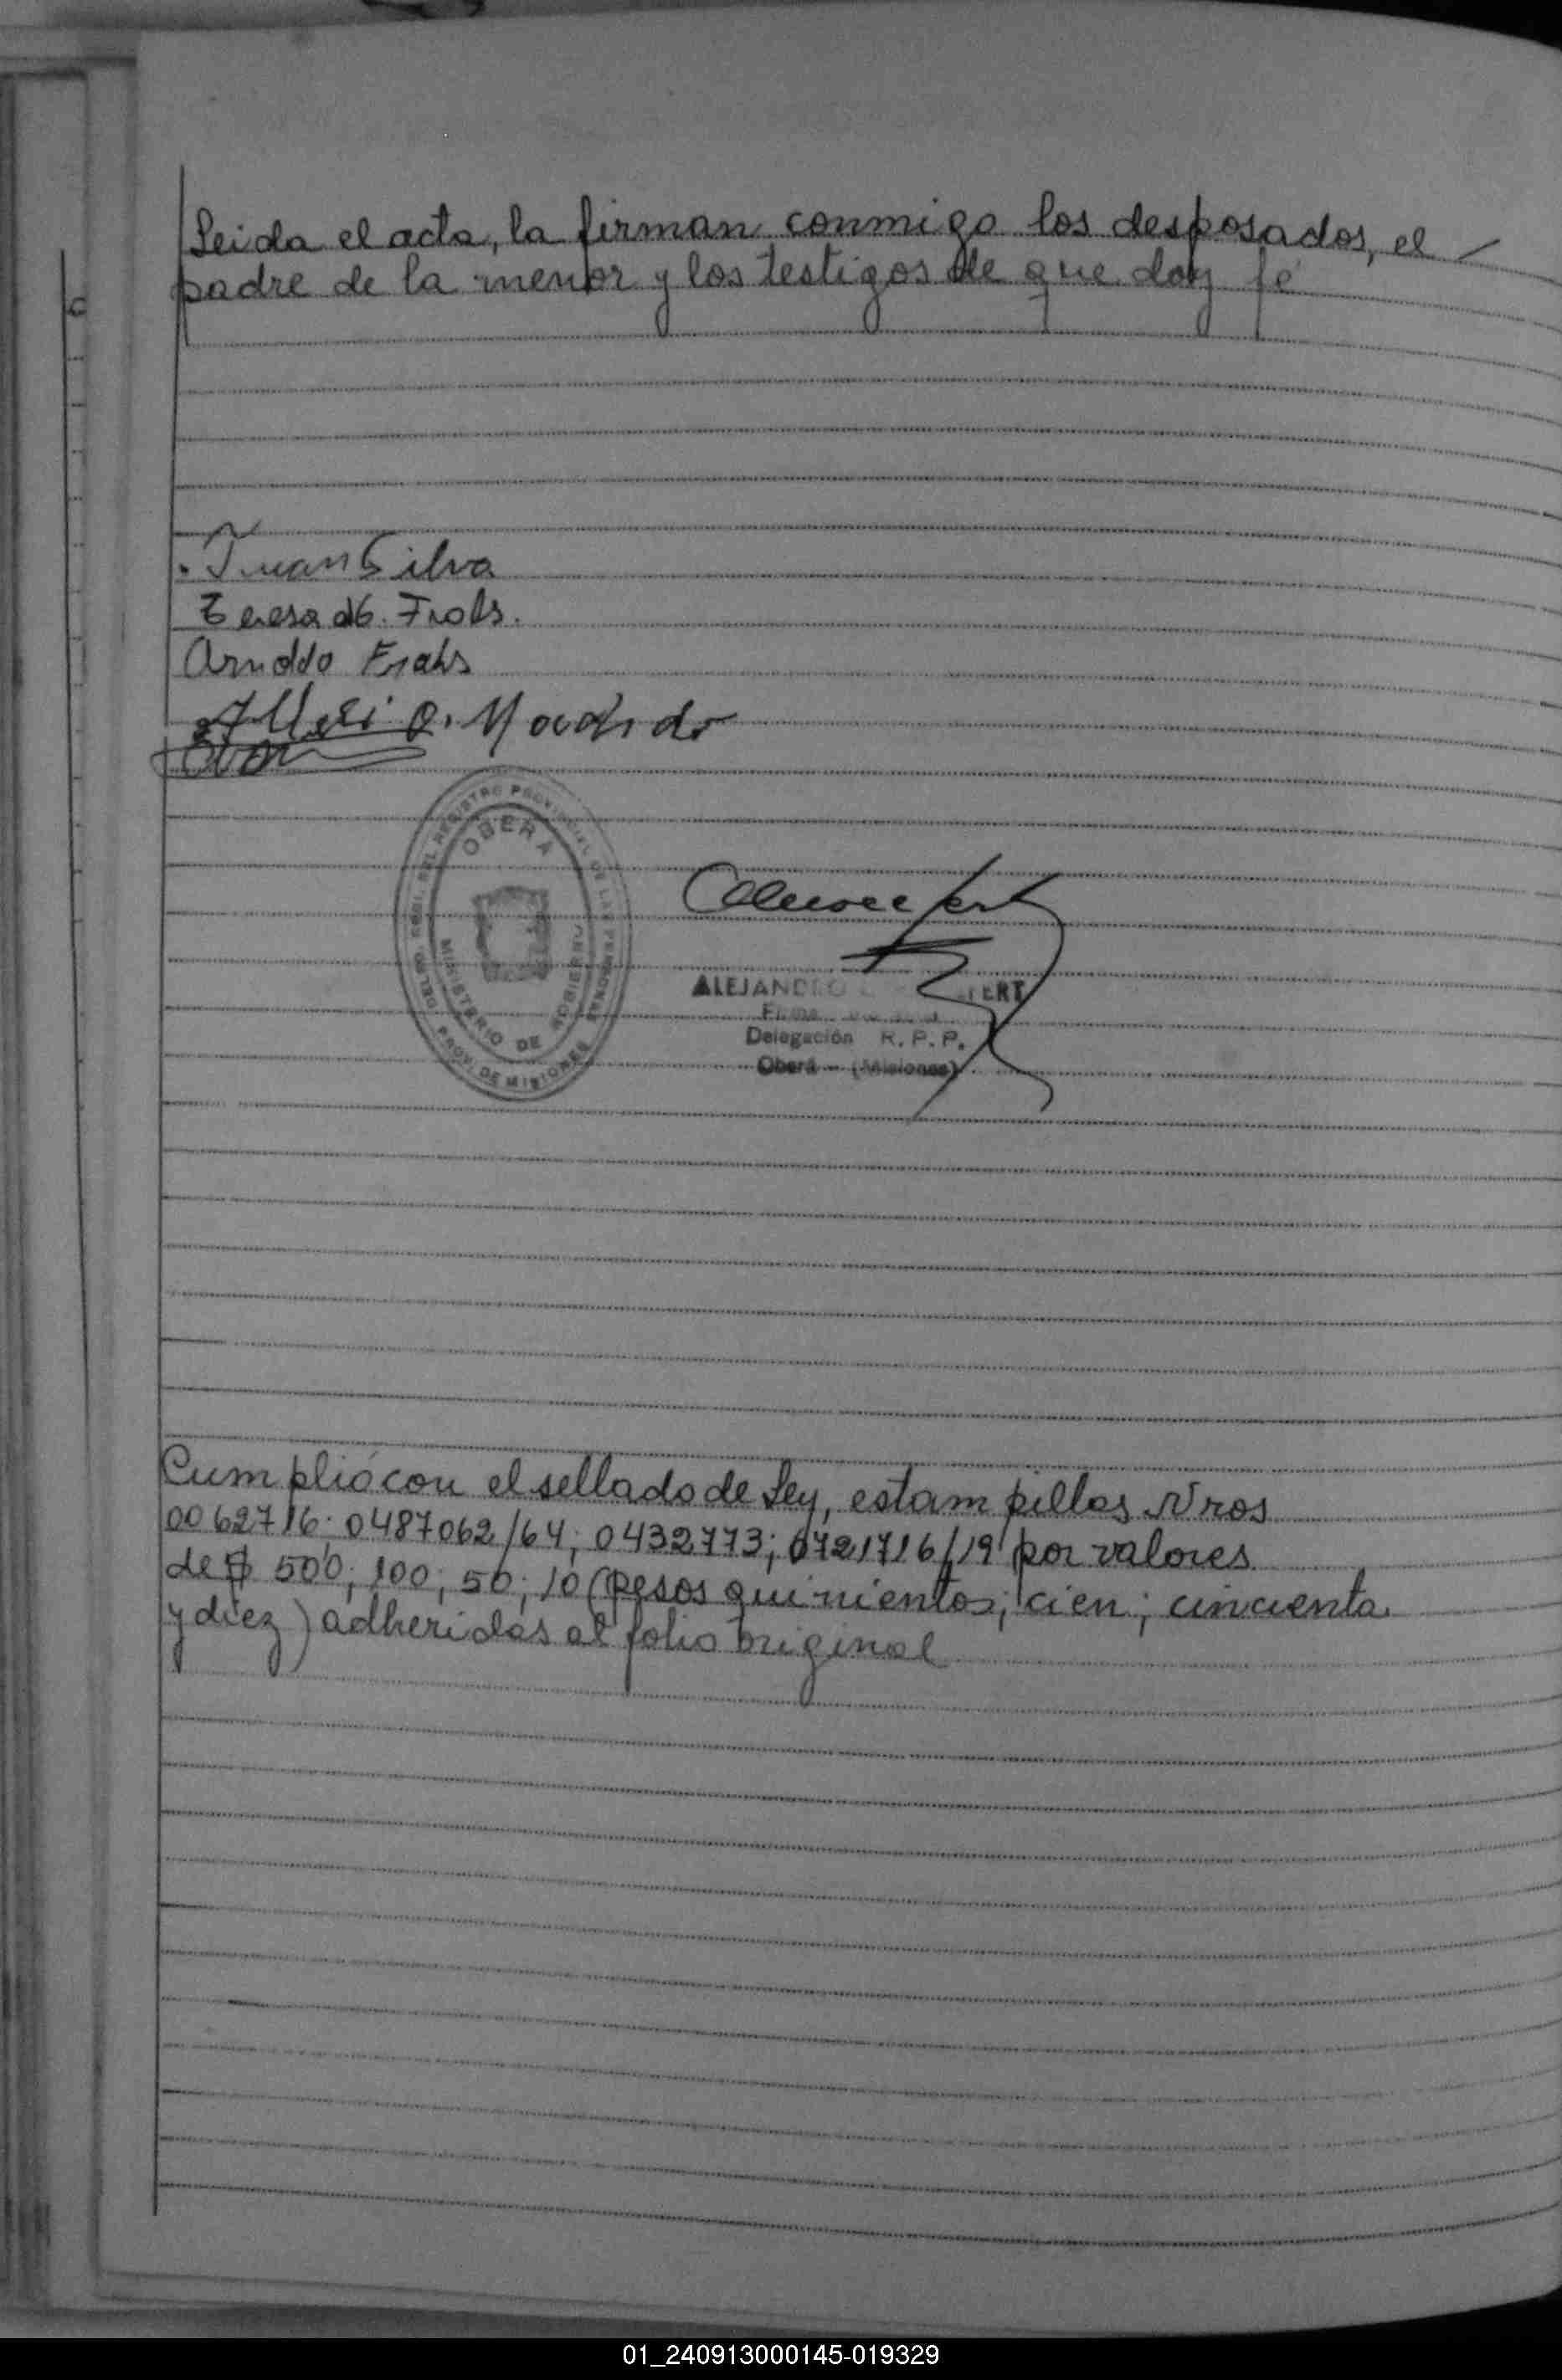 Leida el acta, la firman conmigo los desposados, el
padre de la menor y los testigos de que doy fé
Juan Silva
Teresa Frols.
Arnoldo Frahs
OBERA
MINISTERIO DE GOBIERNO
PROV. DE MISIONES
ALEJANDRO
Delegación R. P. P.
Oberá - (Misiones)
Cumplió con el sellado de Ley, estampillas Nros
0062716; 0487062/64; 0432773; 0721716/19 por valores
de $ 500; 100; 50; 10 (pesos quinientos; cien; cincuenta
y diez) adheridas al folio original
01_240913000145-019329